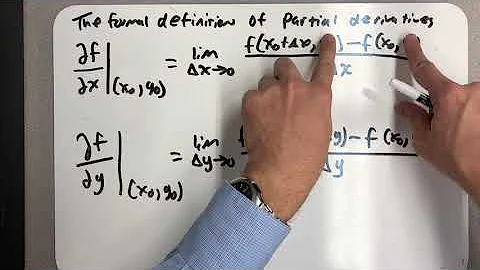 The formal definition of Partial derivatives
∂f/∂x |(x₀,y₀) = lim Δx→0 f(x₀+Δx, ) − f(x₀, / Δx
∂f/∂y |(x₀,y₀) = lim Δy→0 y) − f(x₀, / Δy